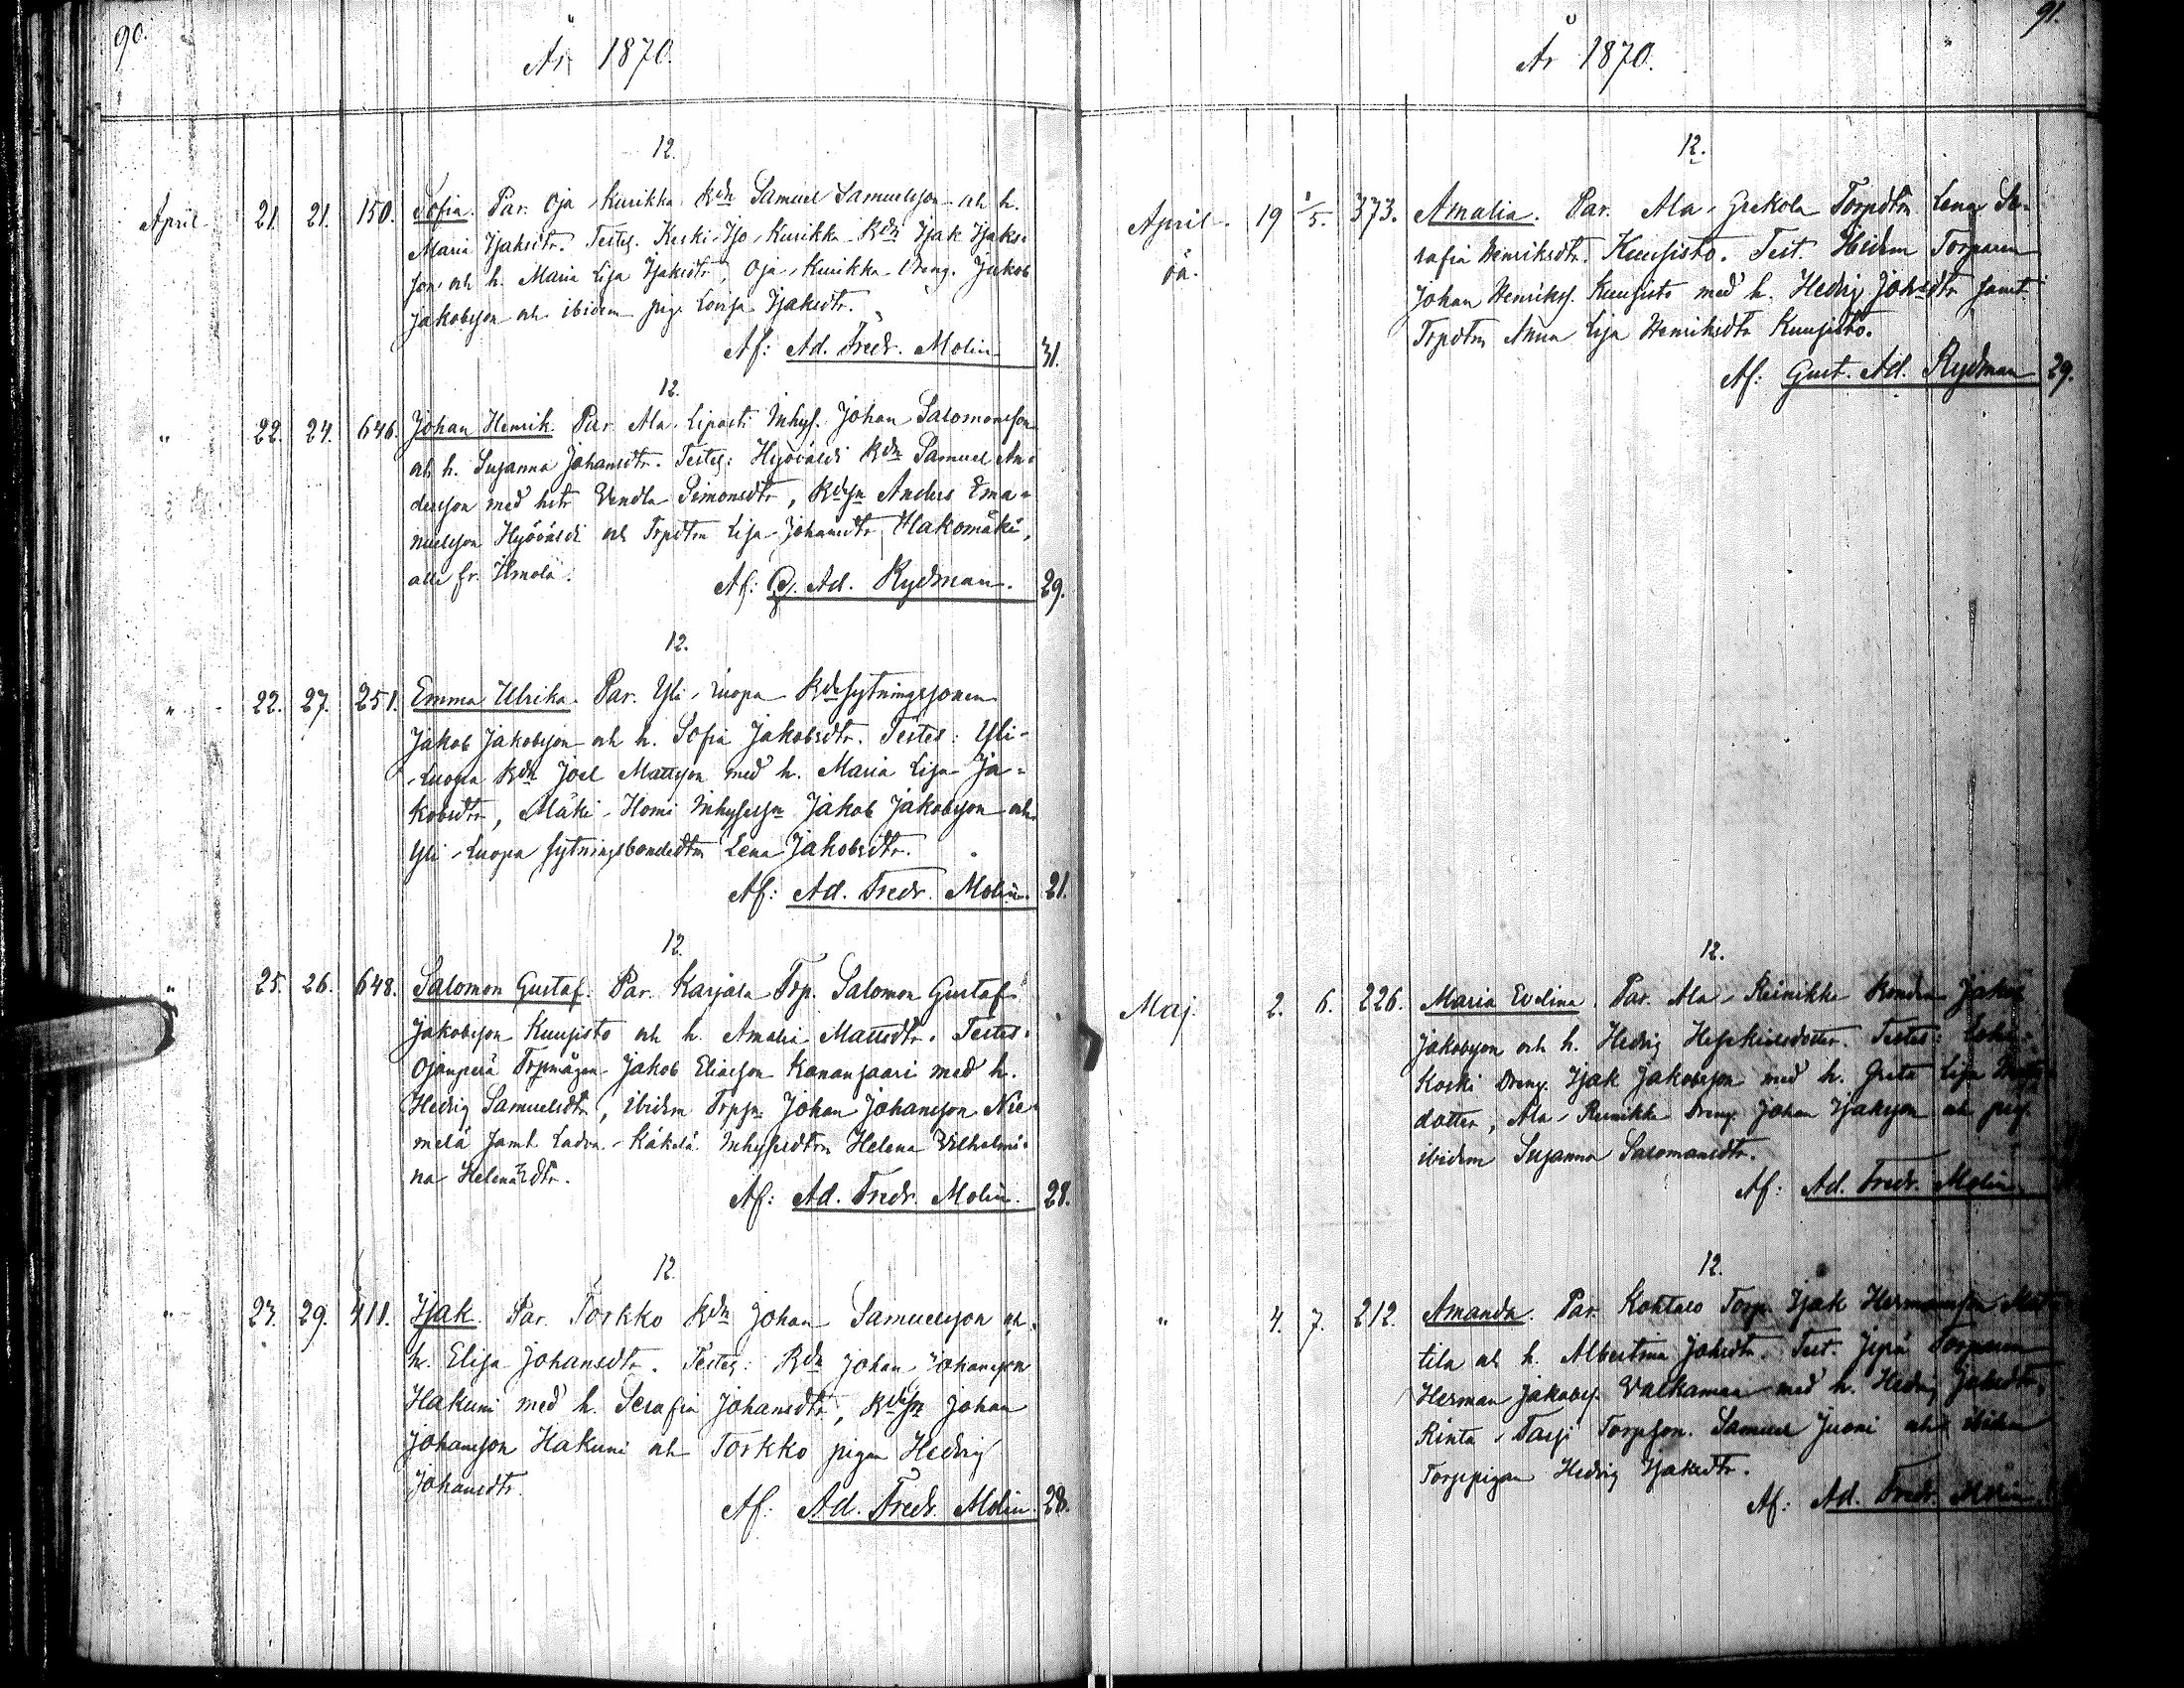 90.
År 1870.
12.
April 21. 21. 150. Sofia. Par. Oja-Kurikka Bdn Samuel Samuelsson och h.
Maria Isaksdtr. Testes. Keski-Iso-Kurikka Bdn Isak Isaks-
son och h. Maria Lisa Isaksdtr, Oja-Kurikka dreng. Jakob
Jakobsson och ibidem pig. Lovisa Isaksdtr.
Af: Ad. Fredr. Molin 31.
12.
" 22. 24. 646. Johan Henrik. Par. Ala-Liposti Inhys. Johan Salomonsson
och h. Susanna Johansdtr. Testes: Hyöväldi Bdn Samuel An-
dersson med hstr Vendla Simonsdtr, Bdesn Anders Ema-
nuelsson Hyöväldi och Trpdtrn Lisa Johansdtr Hakomäki,
alla fr. Ilmola.
Af: G. Ad. Rydman. 29.
12.
" 22. 27. 251. Emma Ulrika. Par. Yli-Luopa Bdesytningssonen
Jakob Jakobsson och h. Sofia Jakobsdtr. Testes: Yli-
-Luopa Bdn Joel Mattsson med h. Maria Lisa Ja-
kobsdtr, Mäki-Homi Inhysessn Jakob Jakobsson och
Yli-Luopa sytningsbondedtrn Lena Jakobsdtr.
Af: Ad. Fredr. Molin. 21.
12.
" 25. 26. 648. Salomon Gustaf. Par. Karjala Trp. Salomon Gustaf
Jakobsson Kuusisto och h. Amalia Mattsdtr. Testes.
Ojanperä Trpmågen Jakob Eliasson Kananjaari med h.
Hedvig Samuelsdtr, ibidem Trpsn Johan Johansson Nie-
melä samt Ladva-Käkelä Inhysesdtrn Helena Vilhelmi-
na Helenædtr.
Af: Ad. Fredr. Molin. 28.
12.
" 23. 29. 411. Isak. Par. Torkko Bdn Johan Samuelsson och
h. Elisa Johansdtr. Testes: Bdn Johan Johansson
Hakuni med h. Serafia Johansdtr, Bdesn Johan
Johansson Hakuni och Torkko pigan Hedvig
Johansdtr.
Af: Ad. Fredr. Molin. 28.
91.
År 1870.
12.
April 19 1/5. 373. Amalia. Par. Ala-Grekola Torpdtrn Lena Se-
oä. rafia Henriksdtr. Kuusisto. Test. Ibidem Torparen
Johan Henrikss. Kuusisto med h. Hedvig Johsdtr samt
Trpdtrn Anna Lisa Henriksdtr Kuusisto.
Af: Gust. Ad. Rydman 29.
12.
Maj. 2. 6. 226. Maria Evelina. Par. Ala-Reinikka Bonden Jakob
Jakobsson och h. Hedvig Heskielsdotter. Testes:
Koski Dreng. Isak Jakobsson med h. Greta Lisa
dotter, Ala-Reinikka Dreng. Johan Isaksson och pig.
ibidem Susanna Salomonsdtr.
Af: Ad. Fredr. Molin.
12.
" 4. 7. 212. Amanda. Par. Kohtalo Torp. Isak Hermansson Mat-
tila och h. Albertina Johsdtr. Test. Jyrä Torparen
Herman Jakobs. Valkamaa med h. Hedvig Johsdtr,
Rinta-Tassi Torpson. Samuel Juoni och ibidem
Torppigan Hedvig Isaksdtr.
Af: Ad. Fredr. Molin